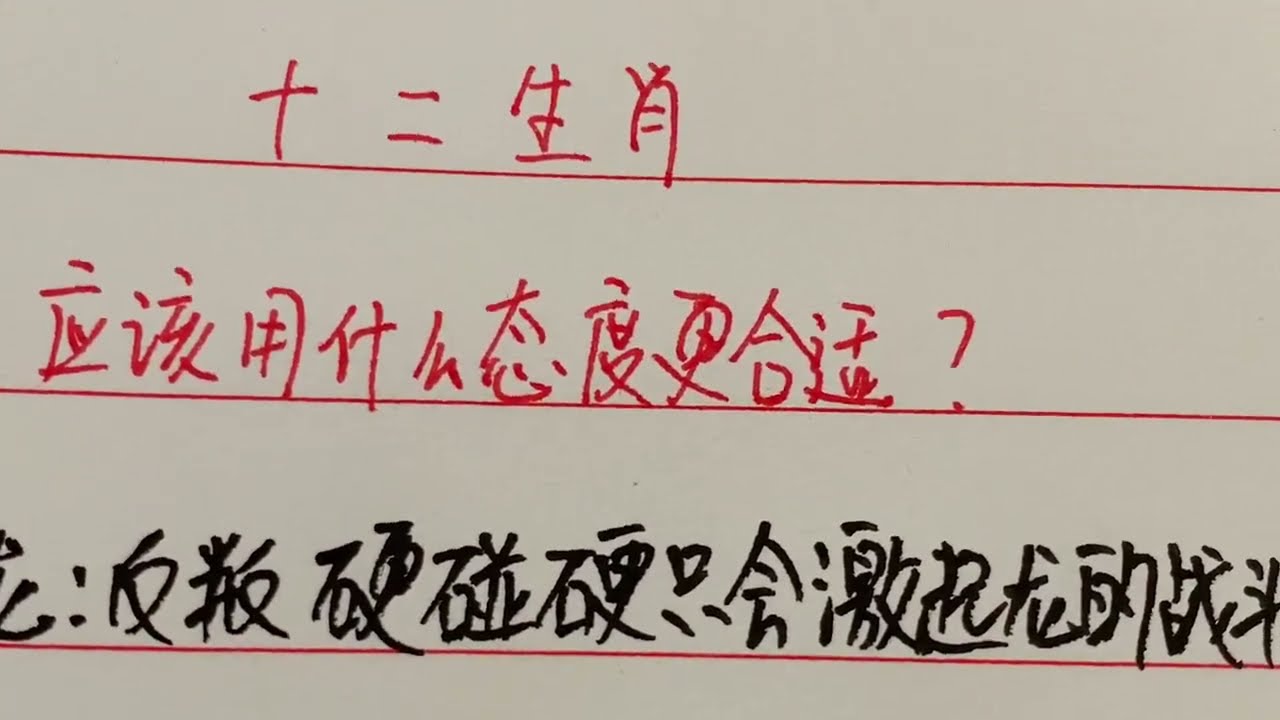 十二生肖
应该用什么态度更合适？
龙：反叛 硬碰硬只会激起龙的战斗